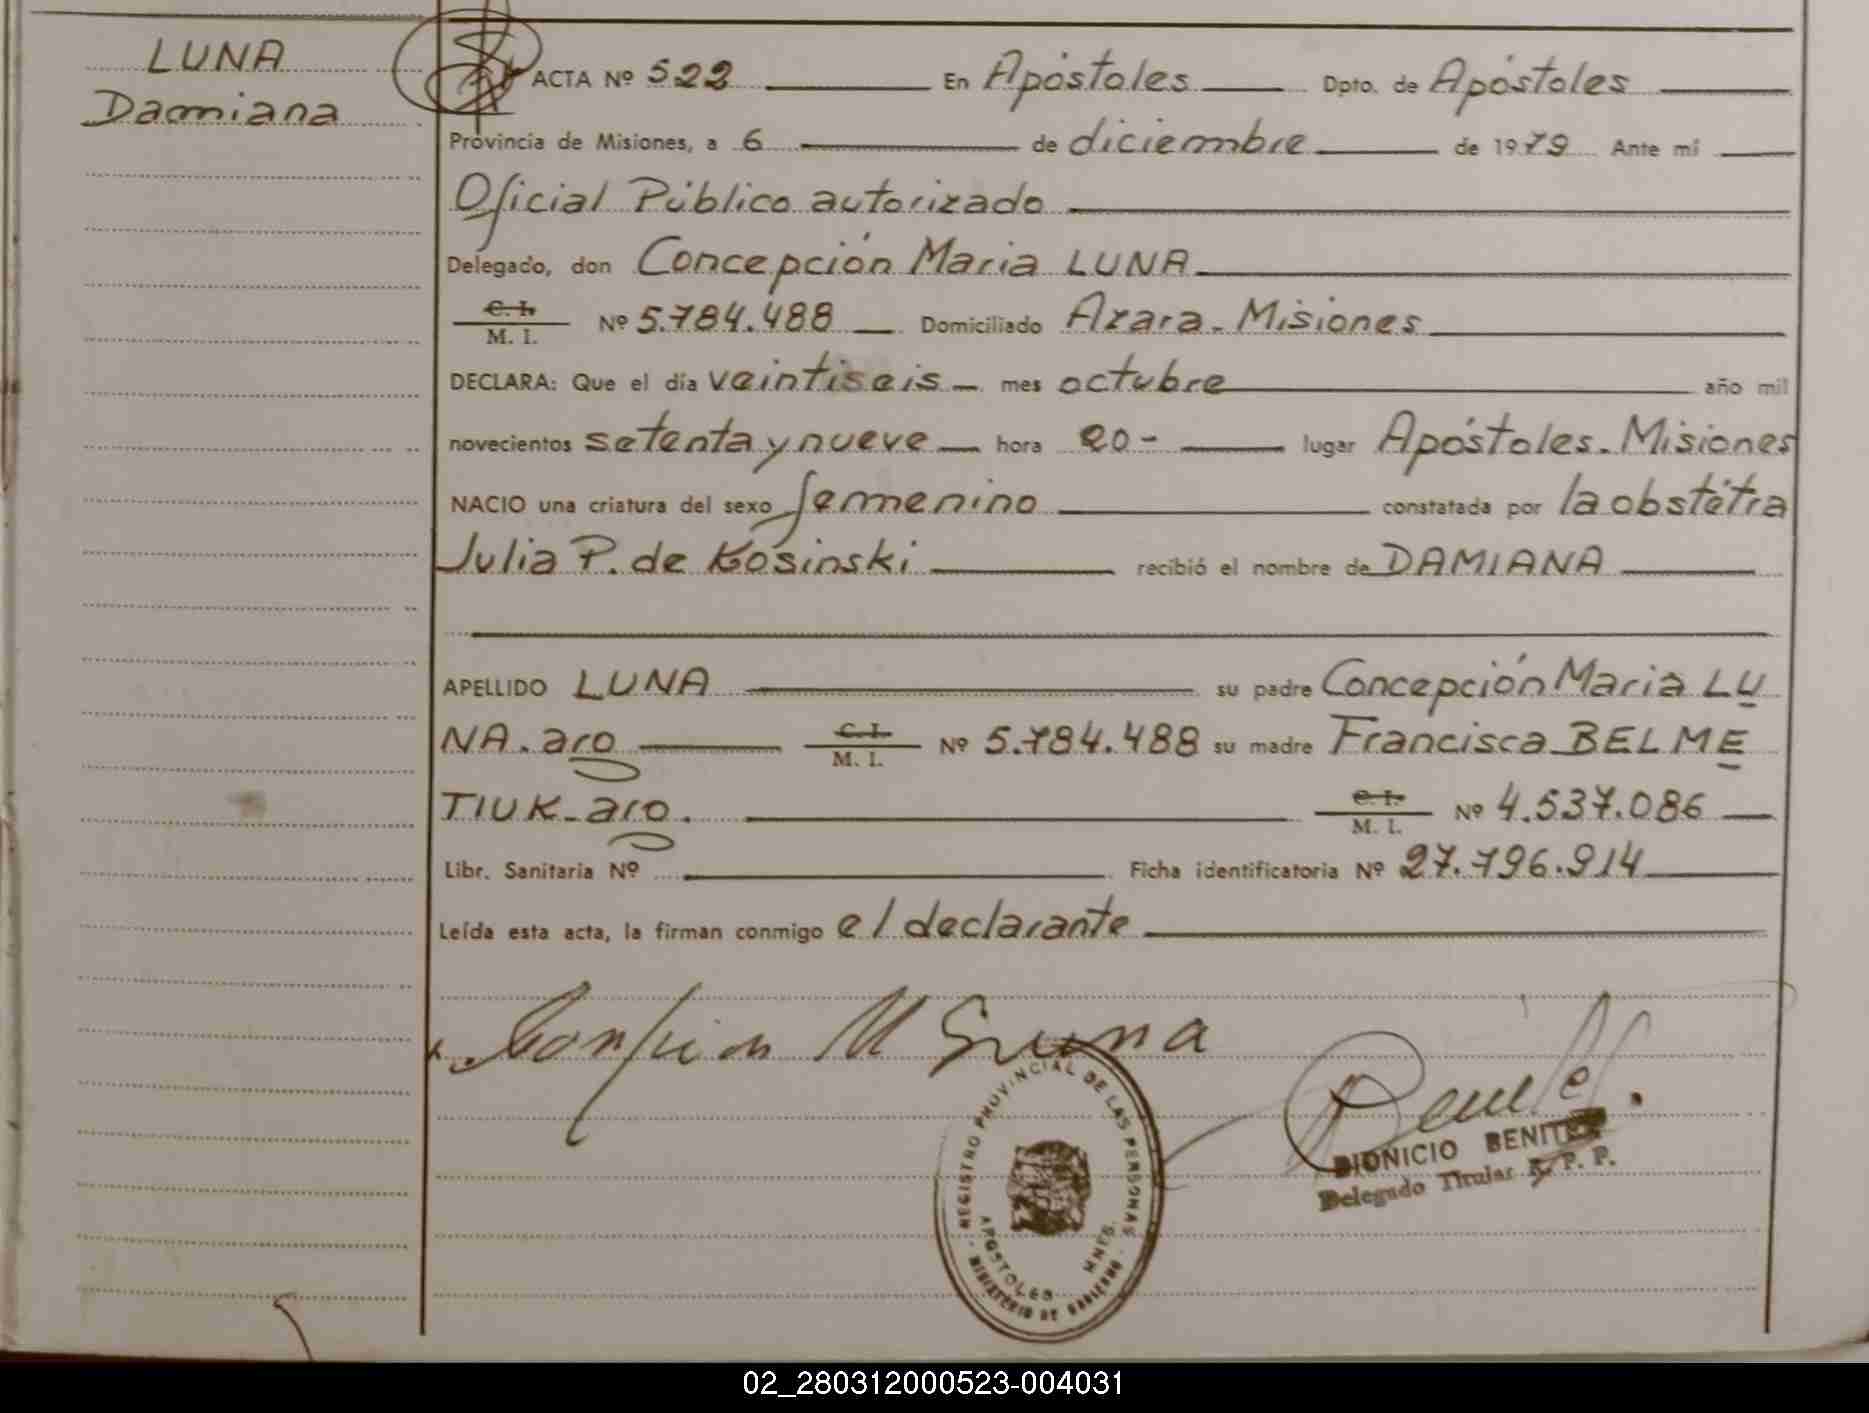 LUNA
Damiana
ACTA Nº 522 En Apóstoles Dpto. de Apóstoles
Provincia de Misiones, a 6 de diciembre de 1979 Ante mí
Oficial Público autorizado
Delegado, don Concepción Maria LUNA
C. I. M. I. Nº 5.784.488 Domiciliado Azara. Misiones
DECLARA: Que el día veintiseis mes octubre año mil
novecientos setenta y nueve hora 20- lugar Apóstoles. Misiones
NACIO una criatura del sexo femenino constatada por la obstétra
Julia P. de Kosinski recibió el nombre de DAMIANA
APELLIDO LUNA su padre Concepción Maria LU
NA. aro C. I. M. I. Nº 5.784.488 su madre Francisca BELME
TIUK. aro. C. I. M. I. Nº 4.537.086
Libr. Sanitaria Nº Ficha identificatoria Nº 27.796.914
Leída esta acta, la firman conmigo el declarante
REGISTRO PROVINCIAL DE LAS PERSONAS
APOSTOLES MNES.
MINISTERIO DE GOBIERNO
DIONICIO BENITEZ
Delegado Titular R. P. P.
02_280312000523-004031